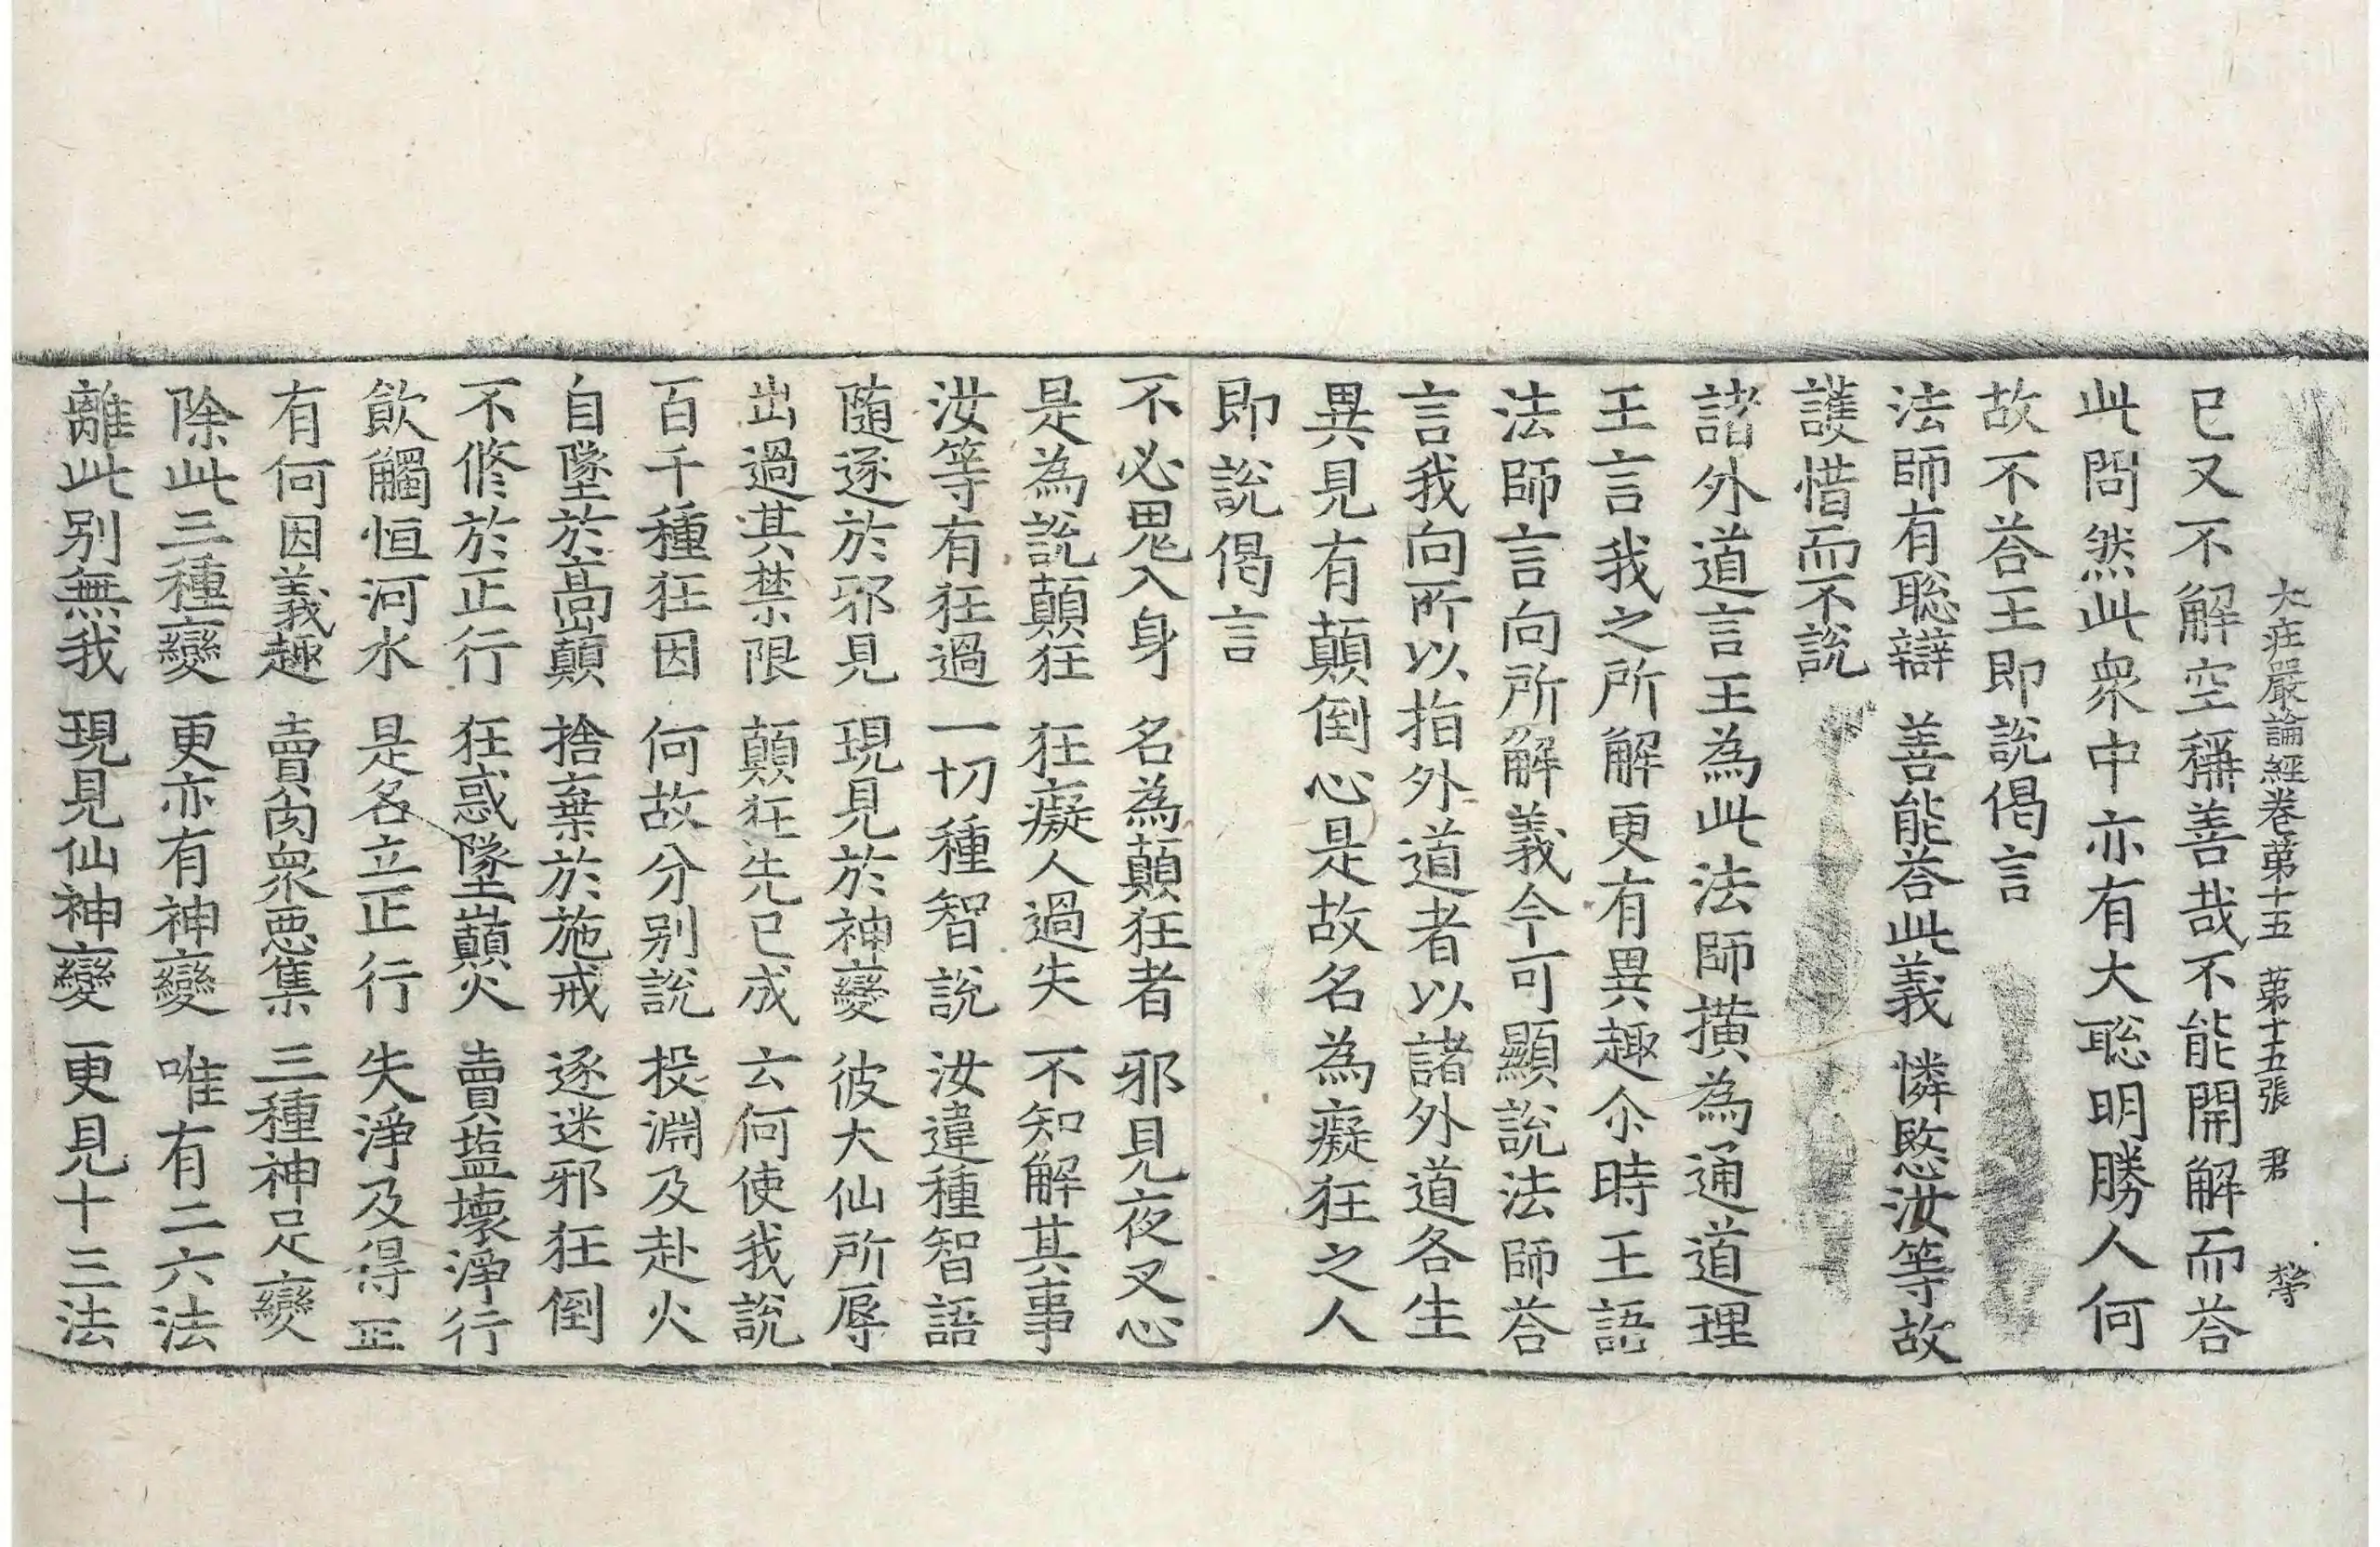 大莊嚴論經卷第十五 第十五張 君
已又不解空稱善哉不能開解而荅
此問然此衆中亦有大聡明勝人何
故不荅王即說偈言
法師有聡辯 善能荅此義 憐愍汝等故
護惜而不說
諸外道言王為此法師撗為通道理
王言我之所解更有異趣尒時王語
法師言向所解義今可顯說法師荅
言我向所以指外道者以諸外道各生
異見有顛倒心是故名為癡狂之人
即說偈言
不必鬼入身 名為顛狂者 邪見夜叉心
是為說顛狂 狂癡人過失 不知解其事
汝等有狂過 一切種智說 汝違種智語
隨逐於邪見 現見於神變 彼大仙所辱
出過其禁限 顛狂先已成 云何使我說
百千種狂因 何故分別說 投淵及赴火
自墜於高巔 捨棄於施戒 逐迷邪狂倒
不修於正行 狂惑墜巔火 賣塩壞淨行
飲觸恒河水 是名立正行 失淨及得正
有何因義趣 賣肉衆惡集 三種神足變
除此三種變 更亦有神變 唯有二六法
離此別無我 現見仙神變 更見十三法